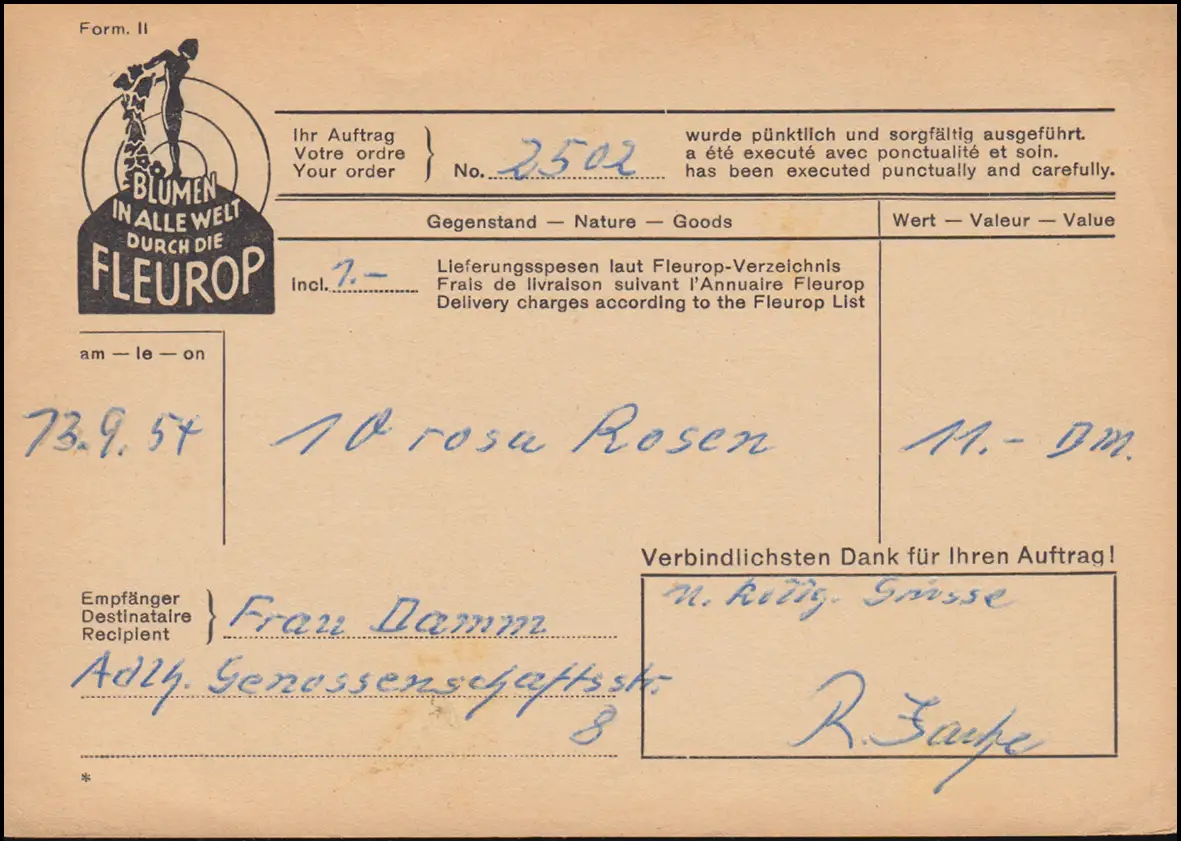 Form. II
BLUMEN
IN ALLE WELT
DURCH DIE
FLEUROP
Ihr Auftrag
Votre ordre
Your order
No. 2502
wurde pünktlich und sorgfältig ausgeführt.
a été executé avec ponctualité et soin.
has been executed punctually and carefully.
Gegenstand — Nature — Goods
Wert — Valeur — Value
incl. 1.-
Lieferungsspesen laut Fleurop-Verzeichnis
Frais de livraison suivant l'Annuaire Fleurop
Delivery charges according to the Fleurop List
am — le — on
13.9.54
10 rosa Rosen
11.- DM.
Verbindlichsten Dank für Ihren Auftrag!
Empfänger
Destinataire
Recipient
Frau Damm
Adlh. Genossenschaftsstr.
8
*
Grüsse
R.